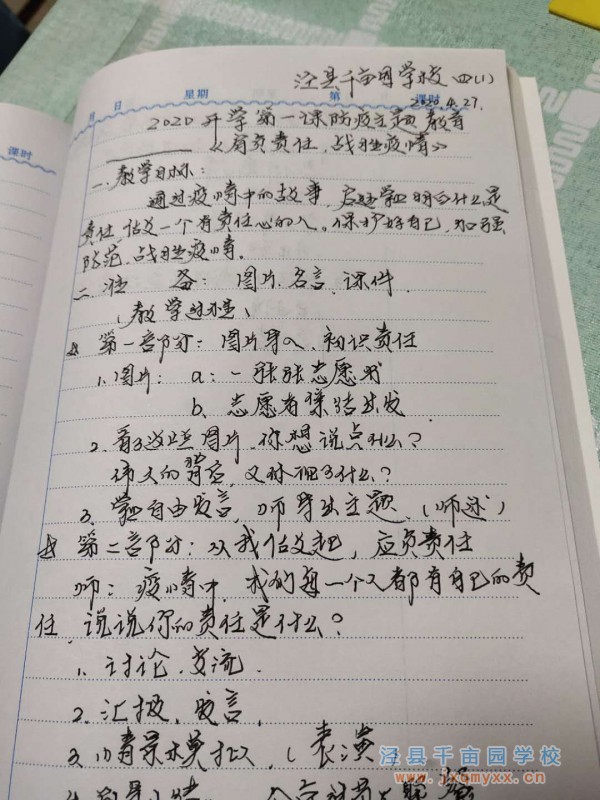 泾县千亩园学校 四(1)
月 日 星期 第 课时
2020.4.27.
课时
2020开学第一课防疫主题教育
《肩负责任,战胜疫情》
一、教学目标:
通过疫情中的故事,启迪学生明白什么是
责任,做一个有责任心的人。保护好自己,加强
防范,战胜疫情。
二、准 备:图片、名言、课件.
(教学过程)
第一部分:图片导入、初识责任
1.图片: a:一张张志愿书
b、志愿者集结出发
2.看了这些图片,你想说点什么?
伟大的背后,又体现了什么?
3、学生自由发言,师导出主题、(师述)
第二部分:从我做起,应负责任
师:疫情中,我们每一个人都有自己的责
任,说说你的责任是什么?
1、讨论.交流.
2、汇报、发言,
3、情景模拟、(表演
泾县千亩园学校
www.jxqmyxx.cn